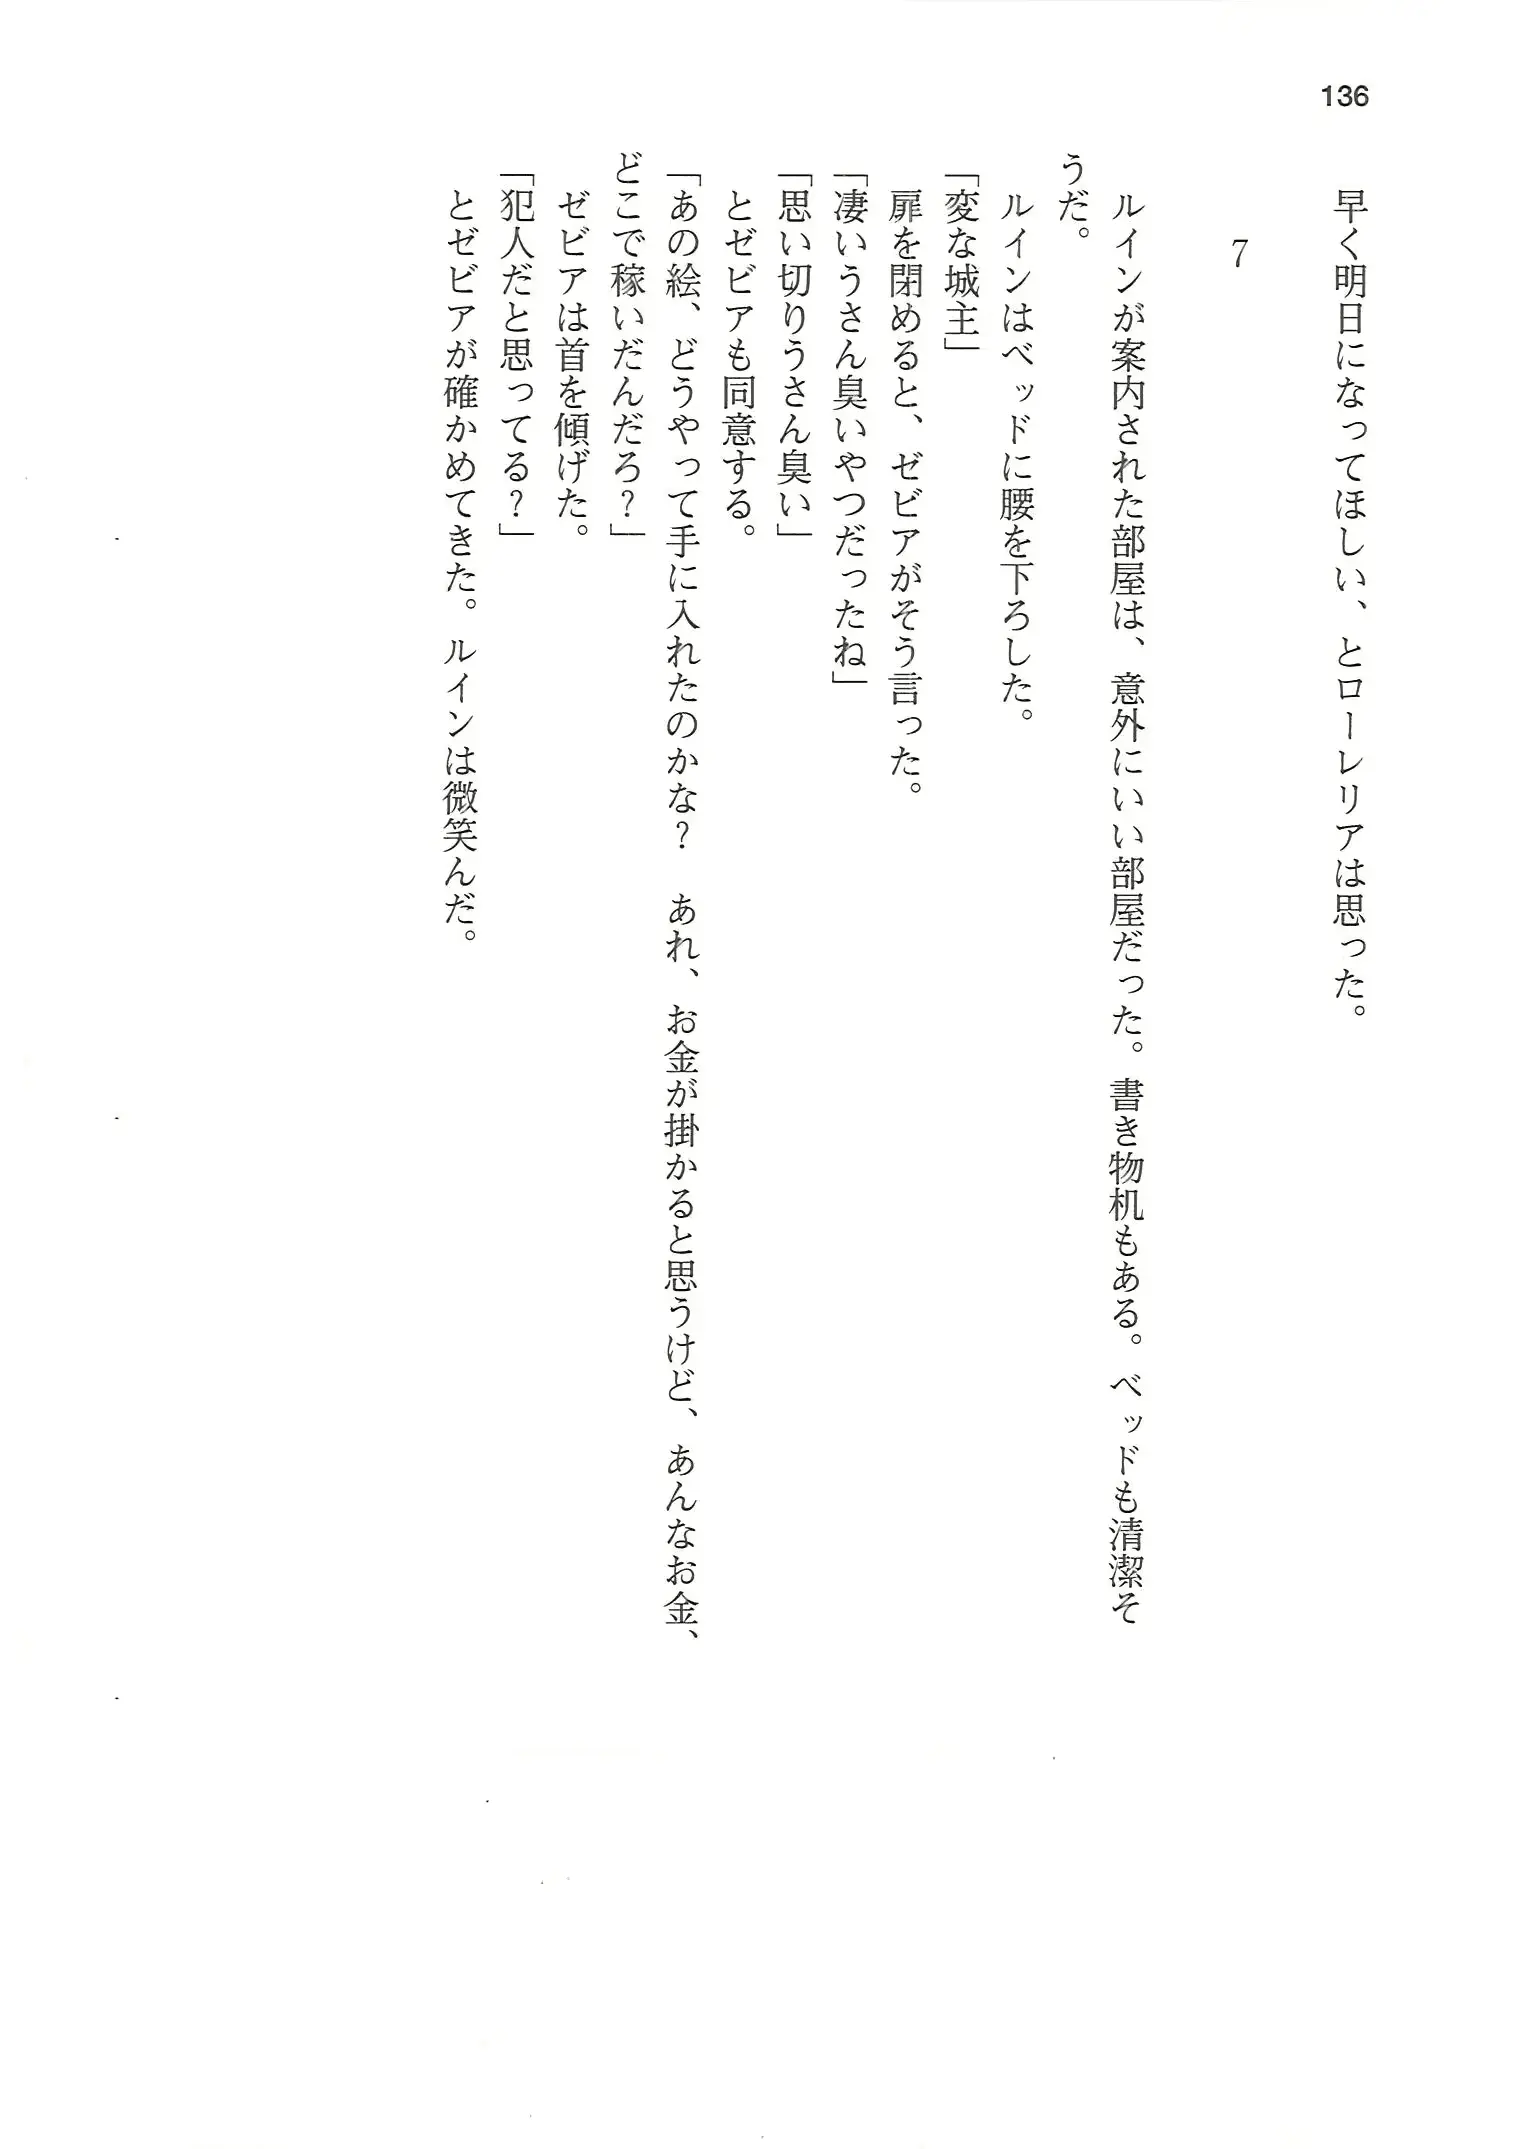 136
早く明日になってほしい、とローレリアは思った。
7
ルインが案内された部屋は、意外にいい部屋だった。書き物机もある。ベッドも清潔そ
うだ。
ルインはベッドに腰を下ろした。
「変な城主」
扉を閉めると、ゼビアがそう言った。
「凄いうさん臭いやつだったね」
「思い切りうさん臭い」
とゼビアも同意する。
「あの絵、どうやって手に入れたのかな？　あれ、お金が掛かると思うけど、あんなお金、
どこで稼いだんだろ？」
ゼビアは首を傾げた。
「犯人だと思ってる？」
とゼビアが確かめてきた。ルインは微笑んだ。